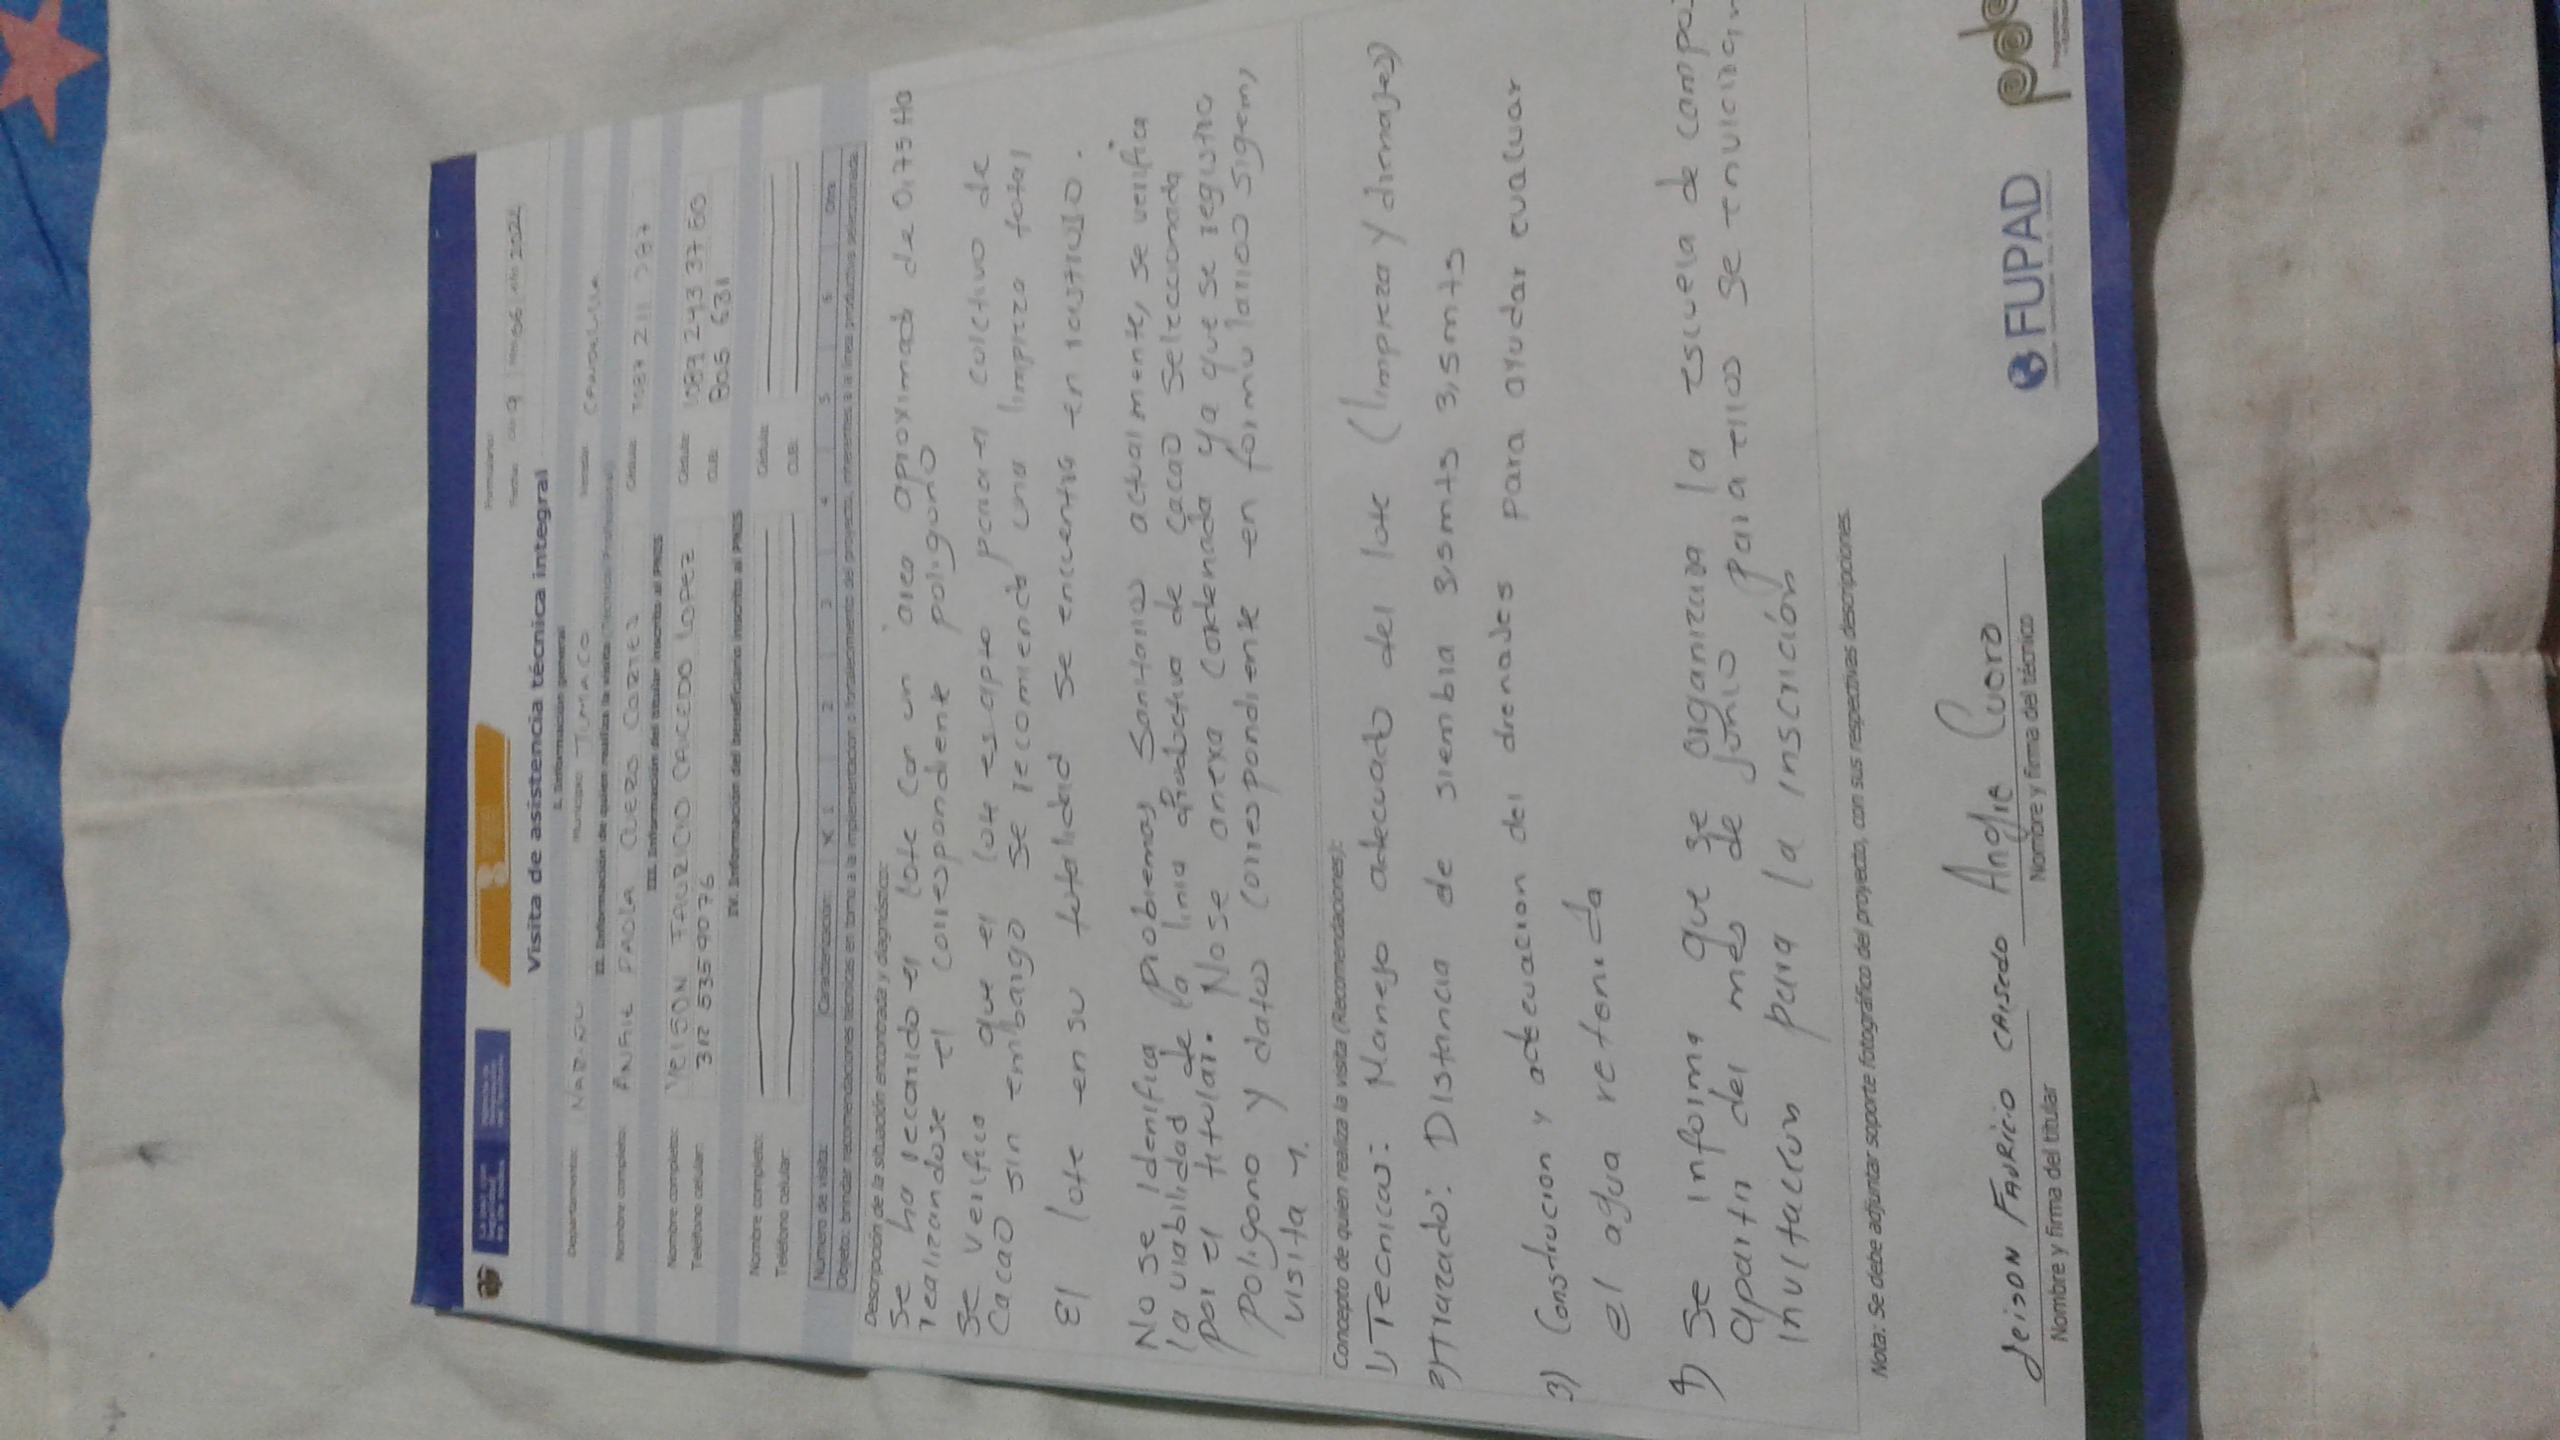 Visita de asistencia técnica integral
Formulario:
Fecha: Día 9 Mes 06 Año 2022
I. Información general
Departamento: NARIÑO Municipio TUMACO Vereda: CANDELILLA
II. Información de quien realiza la visita (Técnico/Profesional)
Nombre completo: ANGIE PAOLA CUERO CORTEZ Cédula: 1087 211
III. Información del titular inscrito al PNIS
Nombre completo: YEISON FAURICIO CAICEDO LOPEZ Cédula: 1087 243 37 60
Teléfono celular: 312 5359076 CUB: 805 631
IV. Información del beneficiario inscrito al PNIS
Nombre completo: Cédula:
Teléfono celular: CUB:
Número de visita: Caracterización: X 1 2 3 4 5 6 Otra
Objeto: brindar recomendaciones técnicas en torno a la implementación o fortalecimiento del proyecto, inherentes a la línea productiva seleccionada.
Descripción de la situación encontrada y diagnóstico:
Se ha recorrido el lote con un área aproximada de 0,75 Ha
realizandose el correspondiente poligono
Se verifico que el lote es apto para el cultivo de
Cacao sin embargo se recomienda una limpieza total
El lote en su totalidad se encuentra en rastrojo.
No se Idenfica Problemas Sanitarios actualmente, se verifica
la viabilidad de la linia productiva de cacao seleccionada
por el titular. No se anexa cordenada ya que se registra
Poligono y datos correspondiente en formularios sigem,
visita 1.
Concepto de quien realiza la visita (Recomendaciones):
1) Tecnico: Manejo adecuado del lote (limpieza y drenajes)
2) trazado: Distancia de siembra 3,5mts 3,5mts
3) Construcion y adecuacion del drenajes para ayudar evacuar
el agua retenida
4) Se informa que se organizara la escuela de campo
apartir del mes de junio para ellos se
invitacion para la inscrición
Nota: Se debe adjuntar soporte fotográfico del proyecto, con sus respectivas descripciones.
Jeison FAURICIO CAISEDO Angie Cuero
Nombre y firma del titular Nombre y firma del técnico
FUPAD